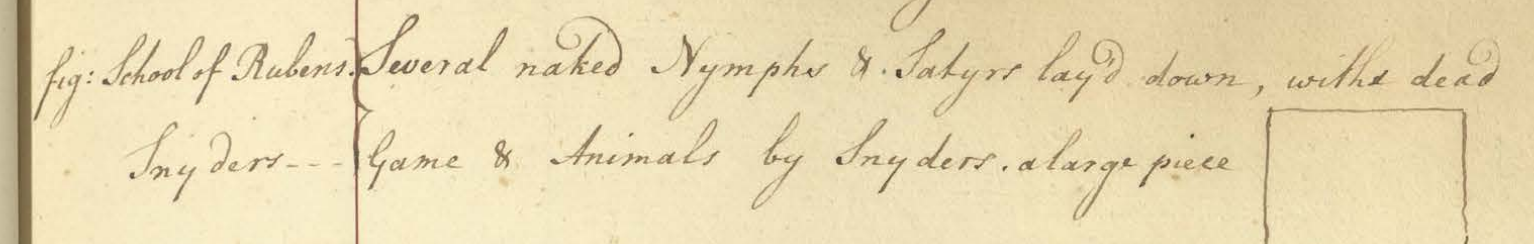 fig: School of Rubens. Several naked Nymphs & Satyrs lay'd down, with dead
Snyders--- Game & Animals by Snyders. a large piece